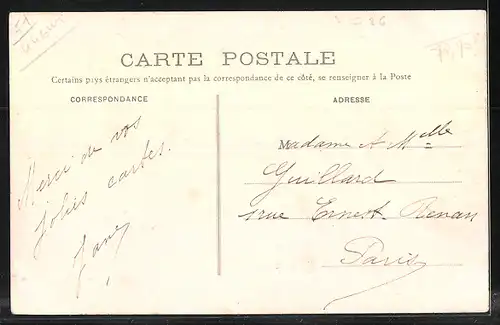 CARTE POSTALE
Certains pays étrangers n'acceptant pas la correspondance de ce côté, se renseigner à la Poste
CORRESPONDANCE
ADRESSE
Merci de vos
jolies cartes.
Madame & Mlle
Guillard
1 rue Ernest Renan
Paris